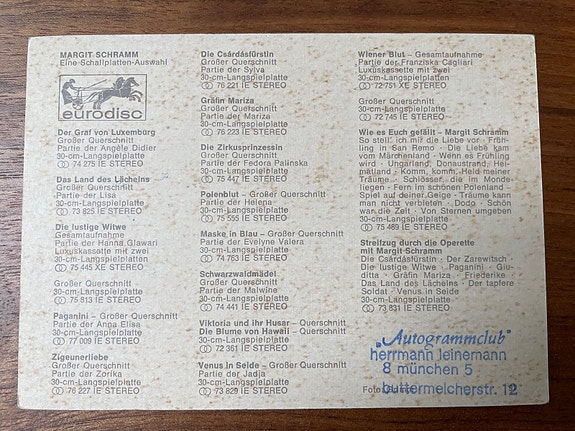 MARGIT SCHRAMM
Eine Schallplatten-Auswahl
eurodisc
Der Graf von Luxemburg
Großer Querschnitt
Partie der Angèle Didier
30-cm-Langspielplatte
74 275 IE STEREO
Das Land des Lächelns
Großer Querschnitt
Partie der Lisa
30-cm-Langspielplatte
73 625 IE STEREO
Die lustige Witwe
Gesamtaufnahme
Partie der Hanna Glawari
Luxuskassette mit zwei
30-cm-Langspielplatten
75 445 XE STEREO
Großer Querschnitt
75 813 IE STEREO
Paganini – Querschnitt
Partie der Anna Elisa
30-cm-Langspielplatte
77 009 IE STEREO
Zigeunerliebe
Großer Querschnitt
Partie der Zorika
30-cm-Langspielplatte
76 227 IE STEREO
Die Csárdásfürstin
Großer Querschnitt
Partie der Sylva
30-cm-Langspielplatte
76 221 IE STEREO
Gräfin Mariza
Großer Querschnitt
Partie der Mariza
30-cm-Langspielplatte
76 223 IE STEREO
Die Zirkusprinzessin
Großer Querschnitt
Partie der Fedora Palinska
30-cm-Langspielplatte
75 447 IE STEREO
Polenblut – Großer Querschnitt
Partie der Helena
30-cm-Langspielplatte
75 555 IE STEREO
Maske in Blau – Querschnitt
Partie der Evelyne Valera
30-cm-Langspielplatte
74 763 IE STEREO
Schwarzwaldmädel
Großer Querschnitt
Partie der Malwine
30-cm-Langspielplatte
74 441 IE STEREO
Viktoria und ihr Husar –
Die Blume von Hawaii – Querschnitt
30-cm-Langspielplatte
72 361 IE STEREO
Venus in Seide – Querschnitt
Partie der Jadja
30-cm-Langspielplatte
73 829 IE STEREO
Wiener Blut – Gesamtaufnahme
Partie der Franziska Cagliari
Luxuskassette mit zwei
30-cm-Langspielplatten
72 751 XE STEREO
Großer Querschnitt
30-cm-Langspielplatte
72 745 IE STEREO
Wie es Euch gefällt – Margit Schramm
So stell' ich mir die Liebe vor · Früh-
ling in San Remo · Die Liebe kam
vom Märchenland · Wenn es Frühling
wird · Ungarland, Donaustrand, Hei-
matland · Komm, komm, Held meiner
Träume · Schlösser, die im Monde
liegen · Fern im schönen Polenland ·
Spiel auf deiner Geige · Träume kann
man nicht verbieten · Dodo · Schön
war die Zeit · Von Sternen umgeben
30-cm-Langspielplatte
75 469 IE STEREO
Streifzug durch die Operette
mit Margit Schramm
Die Csárdásfürstin · Der Zarewitsch ·
Die lustige Witwe · Paganini · Giu-
ditta · Gräfin Mariza · Friederike ·
Das Land des Lächelns · Der tapfere
Soldat · Venus in Seide
30-cm-Langspielplatte
73 831 IE STEREO
„Autogrammclub"
herrmann leinemann
8 münchen 5
buttermelcherstr. 12
Foto